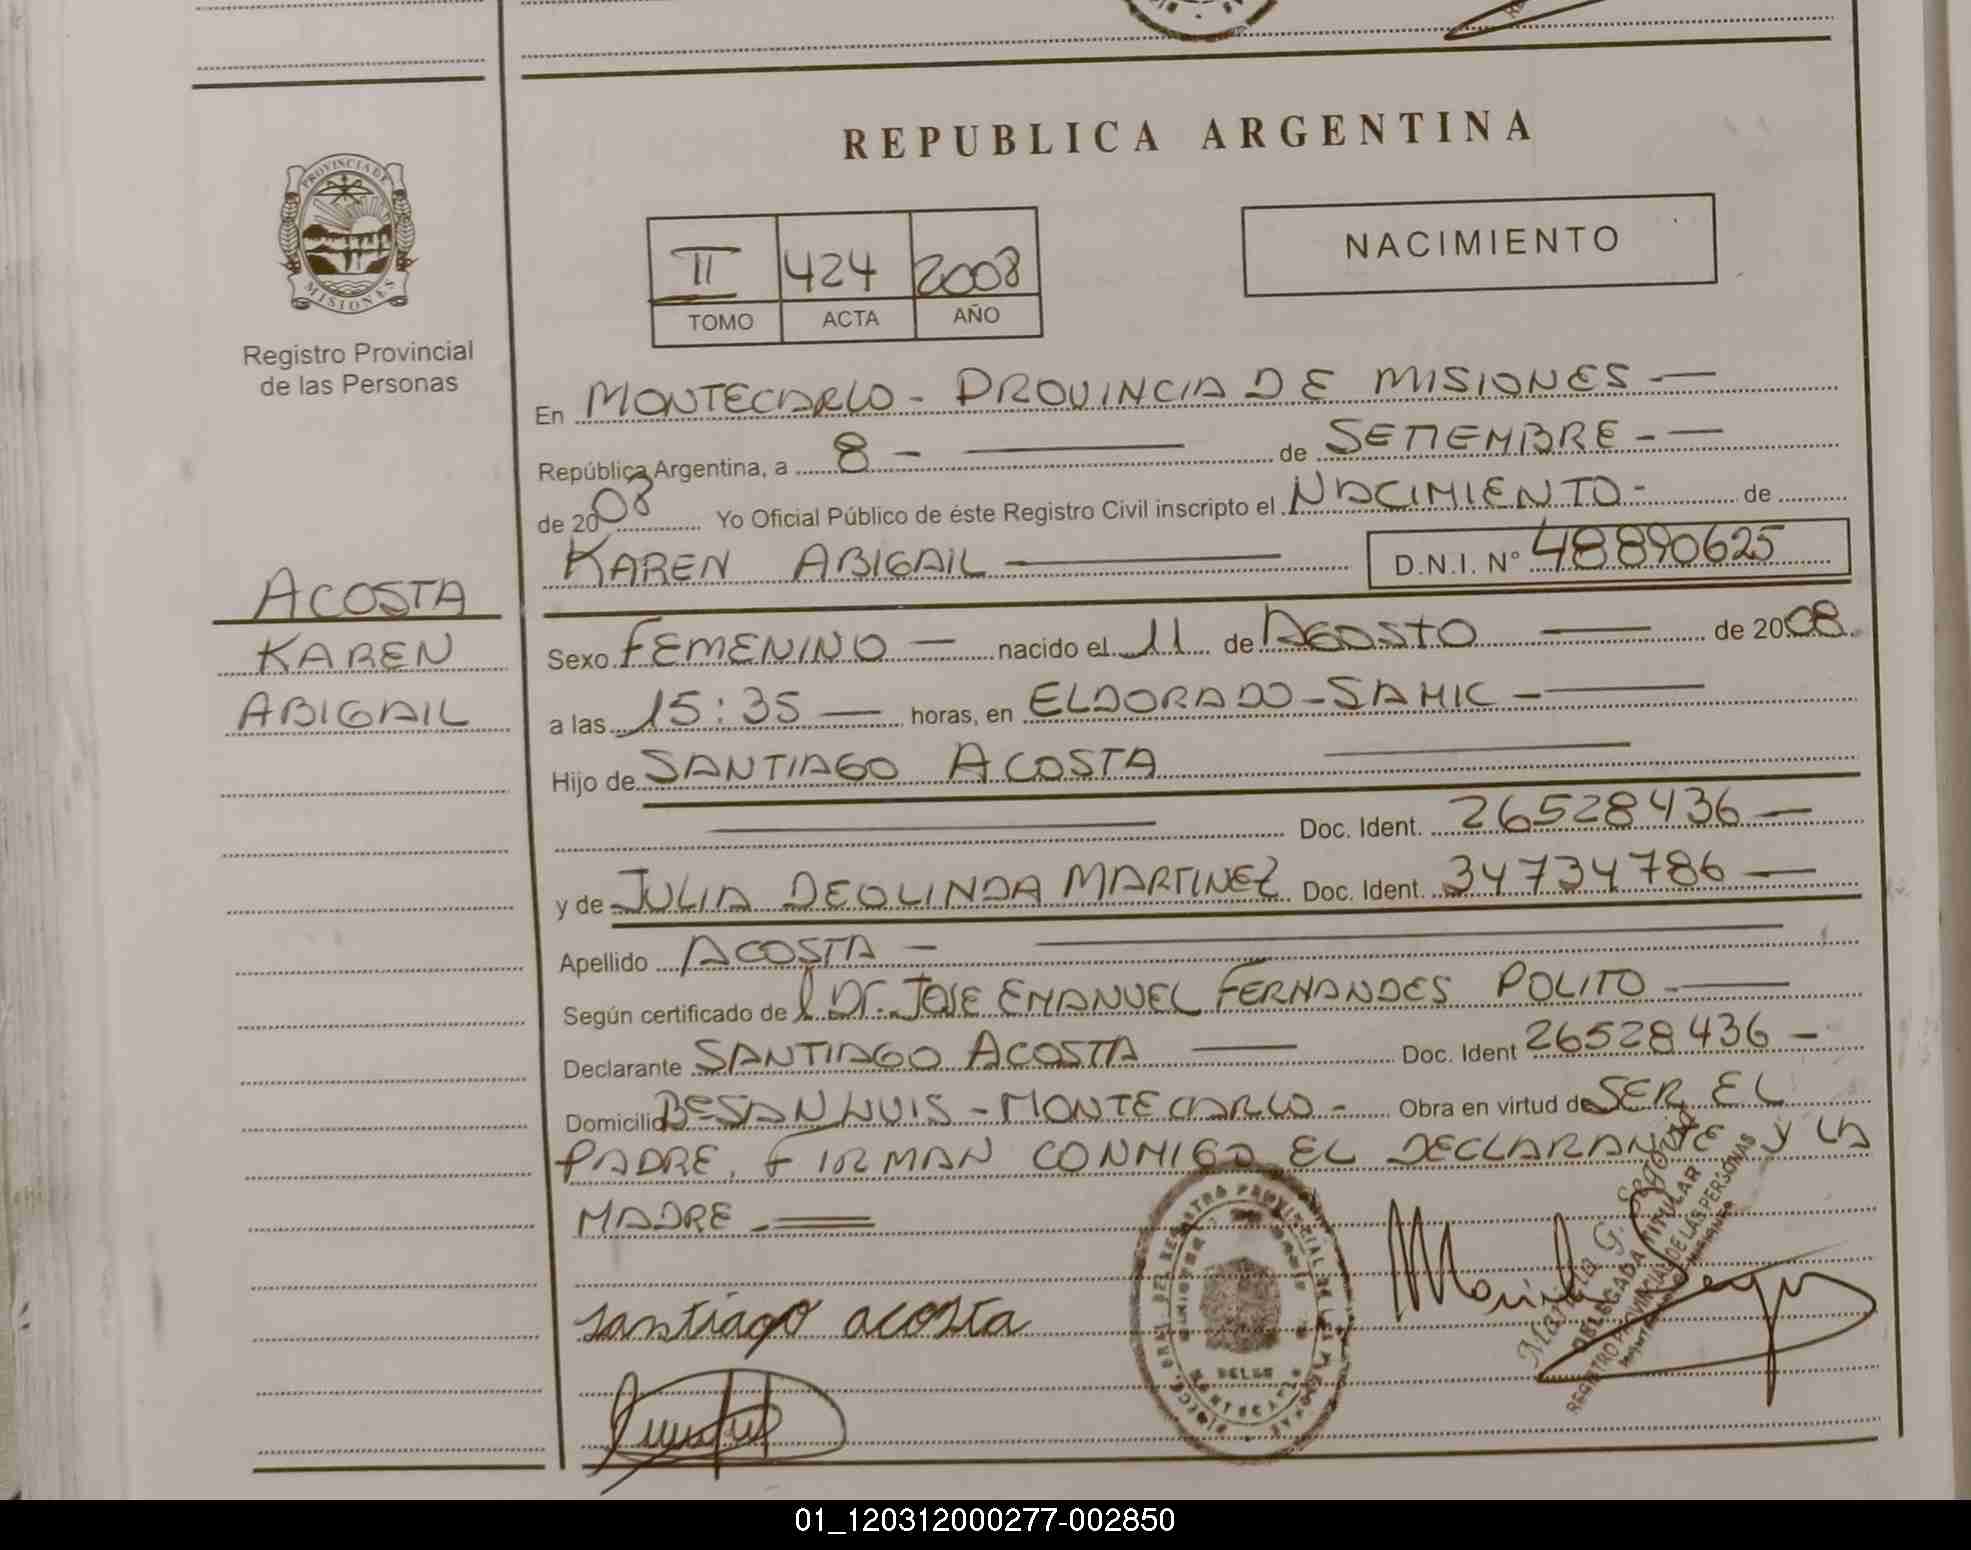 REPUBLICA ARGENTINA
PROVINCIA DE
MISIONES
Registro Provincial
de las Personas
NACIMIENTO
II 424 2008
TOMO ACTA AÑO
En MONTECARLO - PROVINCIA DE MISIONES —
República Argentina, a 8 - — de SETIEMBRE - —
de 2008 Yo Oficial Público de éste Registro Civil inscripto el NACIMIENTO - de
KAREN ABIGAIL — D.N.I. N° 48890625
ACOSTA
KAREN
ABIGAIL
Sexo FEMENINO — nacido el 11 de AGOSTO — de 2008
a las 15:35 — horas, en ELDORADO - SAMIC —
Hijo de SANTIAGO ACOSTA —
— Doc. Ident. 26528436 —
y de JULIA DEOLINDA MARTINEZ Doc. Ident. 34734786 —
Apellido ACOSTA — —
Según certificado de l Dr. JOSE EMANUEL FERNANDES POLITO —
Declarante SANTIAGO ACOSTA — Doc. Ident 26528436 —
Domicilio B° SAN LUIS - MONTECARLO - Obra en virtud de SER EL
PADRE. FIRMAN CONMIGO EL DECLARANTE Y LA
MADRE
santiago acosta
DELEGADA TITULAR
REGISTRO PROVINCIAL DE LAS PERSONAS
01_120312000277-002850